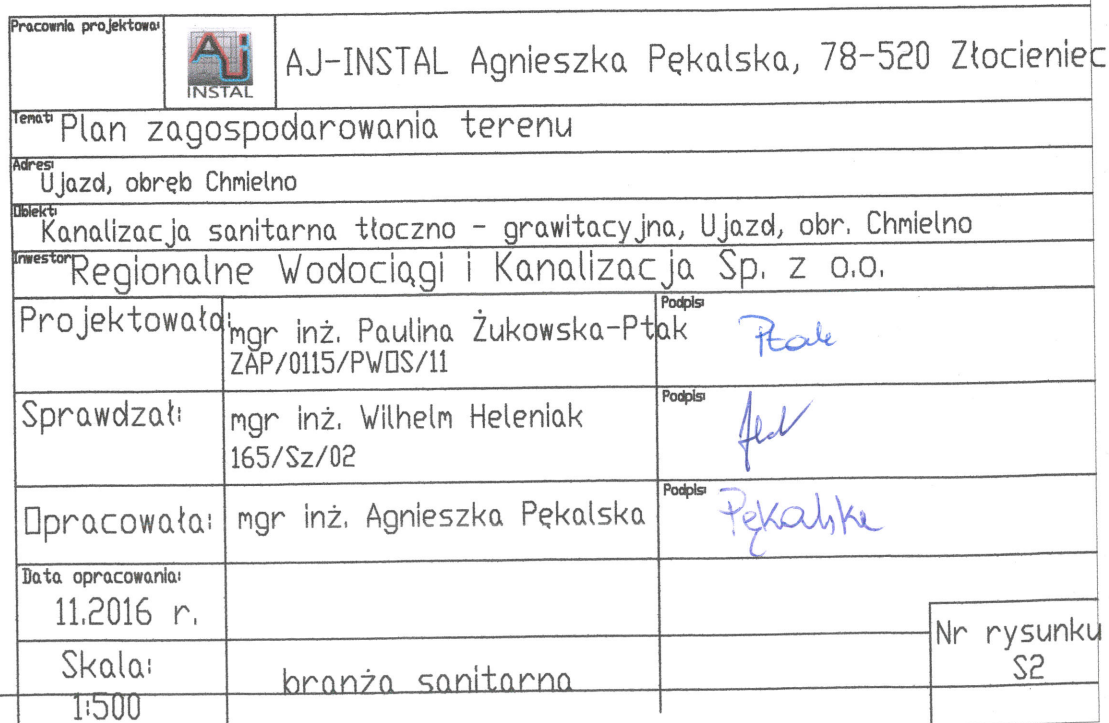 Pracownia projektowa:
Aj
INSTAL
AJ-INSTAL Agnieszka Pękalska, 78-520 Złocieniec
Temat: Plan zagospodarowania terenu
Adres:
Ujazd, obręb Chmielno
Obiekt:
Kanalizacja sanitarna tłoczno - grawitacyjna, Ujazd, obr. Chmielno
Inwestor Regionalne Wodociągi i Kanalizacja Sp. z o.o.
Projektowała: mgr inż. Paulina Żukowska-Ptak
ZAP/0115/PWOS/11
Podpis:
Ptak
Sprawdzał: mgr inż. Wilhelm Heleniak
165/Sz/02
Podpis:
Opracowała: mgr inż. Agnieszka Pękalska
Podpis:
Pękalska
Data opracowania:
11.2016 r.
Skala:
1:500
branża sanitarna
Nr rysunku
S2